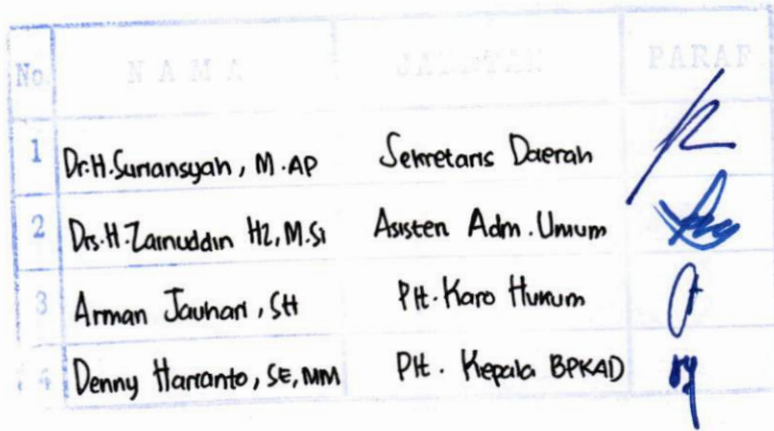 No N A M A JABATAN PARAF
1 Dr.H.Suriansyah, M.AP Sekretaris Daerah
2 Drs.H.Zainuddin HZ, M.Si Asisten Adm. Umum
3 Arman Jauhari, SH Plt. Karo Hukum
4 Denny Harianto, SE, MM Plt. Kepala BPKAD